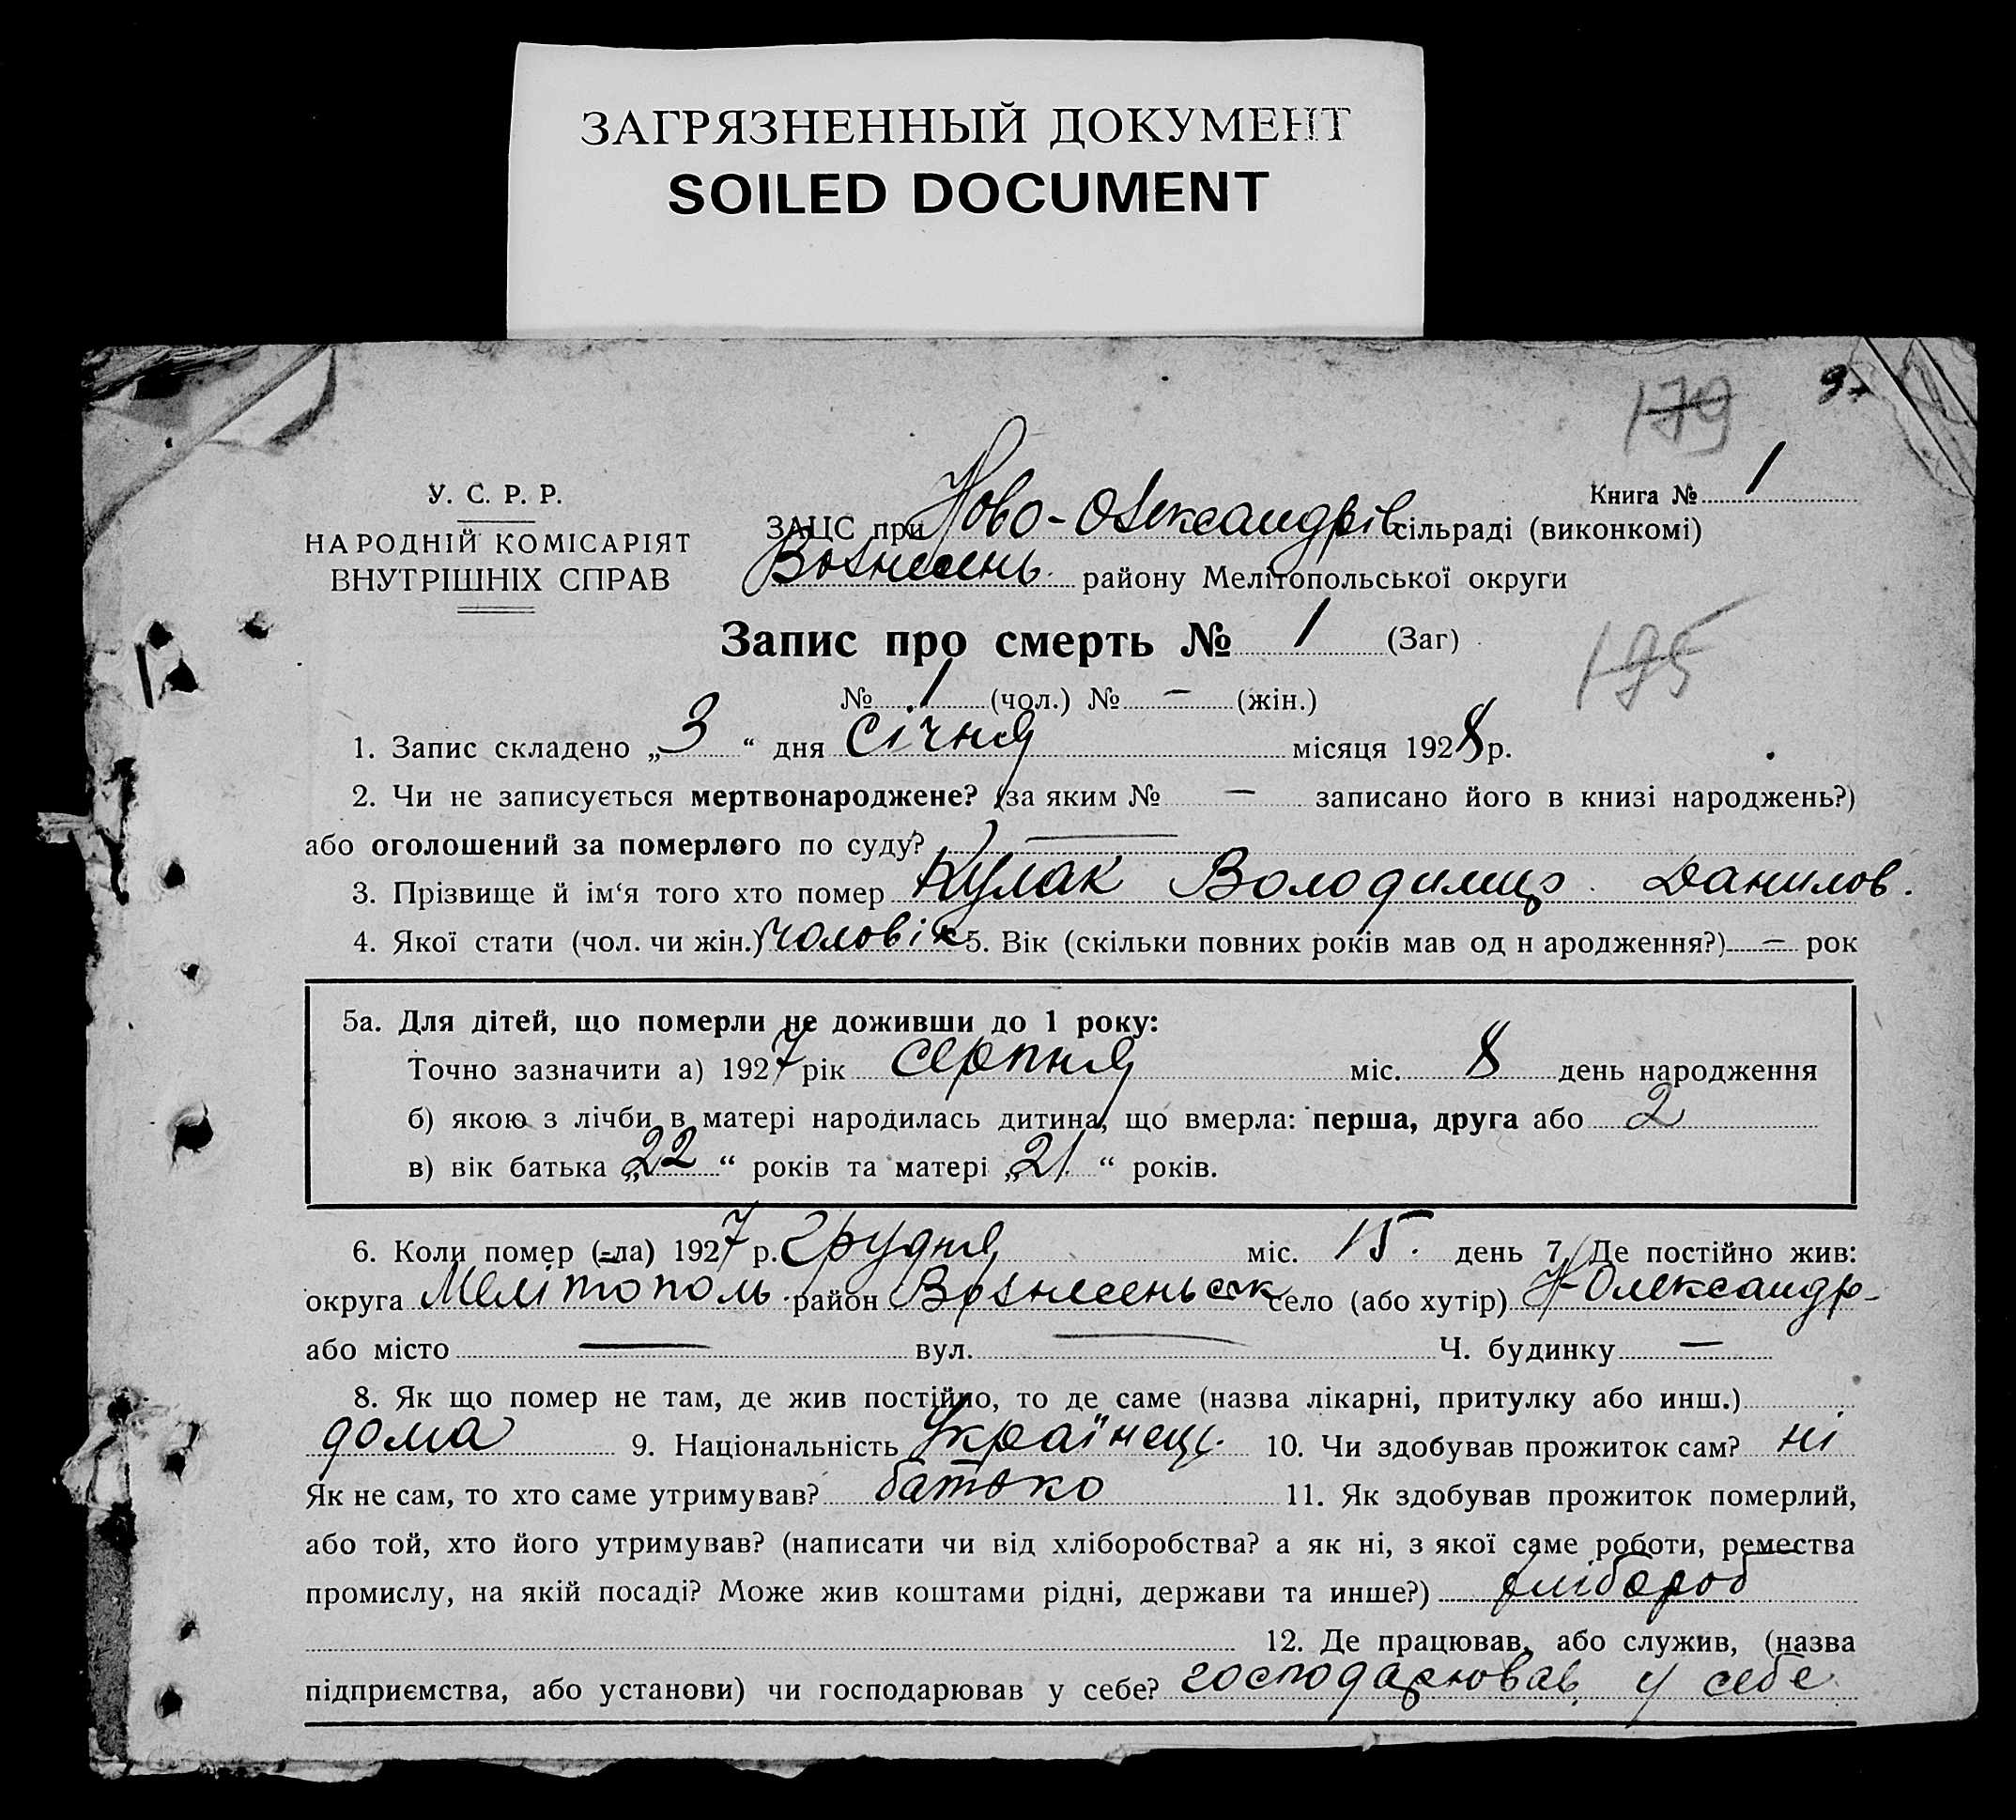 ЗАГРЯЗНЕННЫЙ ДОКУМЕНТ
SOILED DOCUMENT
179
У. С. Р. Р.
НАРОДНІЙ КОМІСАРІЯТ
ВНУТРІШНІХ СПРАВ
Книга № 1
ЗАЦС при Ново-Олександрів сільраді (виконкомі)
Вознесень. району Мелітопольської округи
Запис про смерть № 1 (Заг)
195
№ 1 (чол.) № — (жін.)
1. Запис складено „3“ дня Січня місяця 1928 р.
2. Чи не записується мертвонароджене? (за яким № — записано його в книзі народжень?)
або оголошений за померлого по суду? —
3. Прізвище й ім‘я того хто помер Кулак Володимир Данилов.
4. Якої стати (чол. чи жін.) чоловік 5. Вік (скільки повних років мав од н ародження?) — рок
5а. Для дітей, що померли не доживши до 1 року:
Точно зазначити а) 1927 рік серпня міс. 8 день народження
б) якою з лічби в матері народилась дитина, що вмерла: перша, друга або 2
в) вік батька „22“ років та матері „21“ років.
6. Коли помер (-ла) 1927 р. Грудня міс. 15. день 7. Де постійно жив:
округа Мелітополь район Вознесеньськ село (або хутір) Н-Олександр-
або місто — вул. — Ч. будинку —
8. Як що помер не там, де жив постійно, то де саме (назва лікарні, притулку або инш.)
дома 9. Національність Українець 10. Чи здобував прожиток сам? ні
Як не сам, то хто саме утримував? батько 11. Як здобував прожиток померлий,
або той, хто його утримував? (написати чи від хліборобства? а як ні, з якої саме роботи, ремества
промислу, на якій посаді? Може жив коштами рідні, держави та инше?) хлібороб
12. Де працював, або служив, (назва
підприємства, або установи) чи господарював у себе? господарював у себе